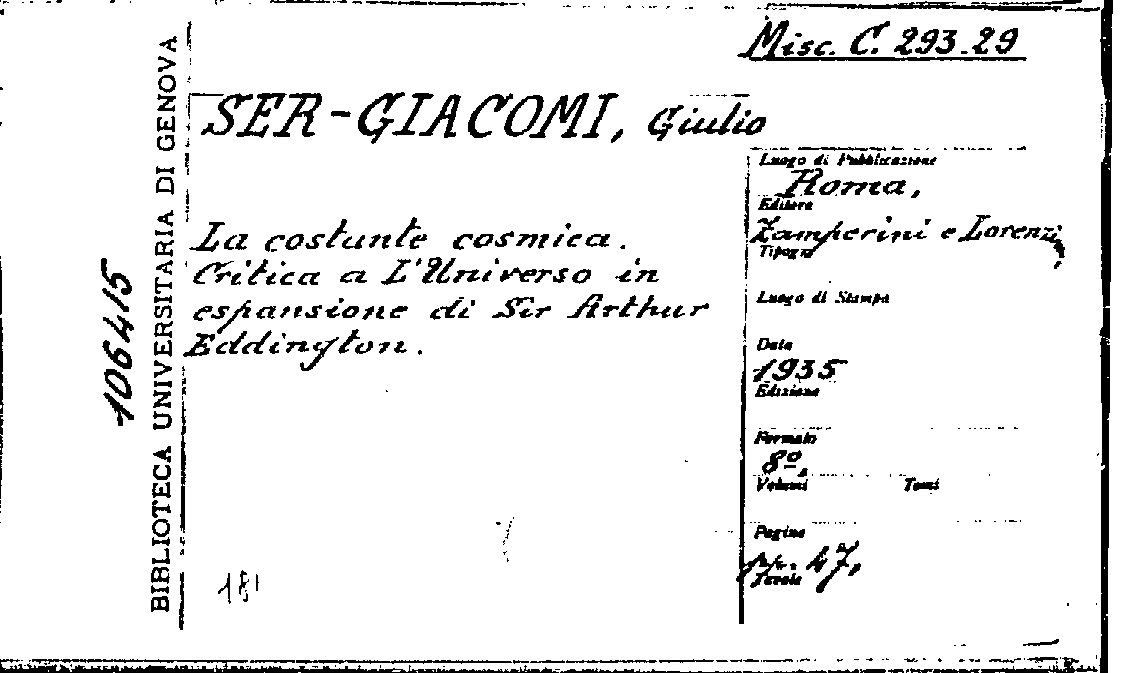 Misc. C. 293.29
SER-GIACOMI, Giulio
La costante cosmica.
Critica a L'Universo in
espansione di Sir Arthur
Eddington.
Luogo di Pubblicazione
Roma,
Editore
Zamperini e Lorenzi,
Tipogr.
Luogo di Stampa
Data
1935
Edizione
Formato
8º,
Volumi Tomi
Pagine
pp. 47,
Tavole
106415
BIBLIOTECA UNIVERSITARIA DI GENOVA